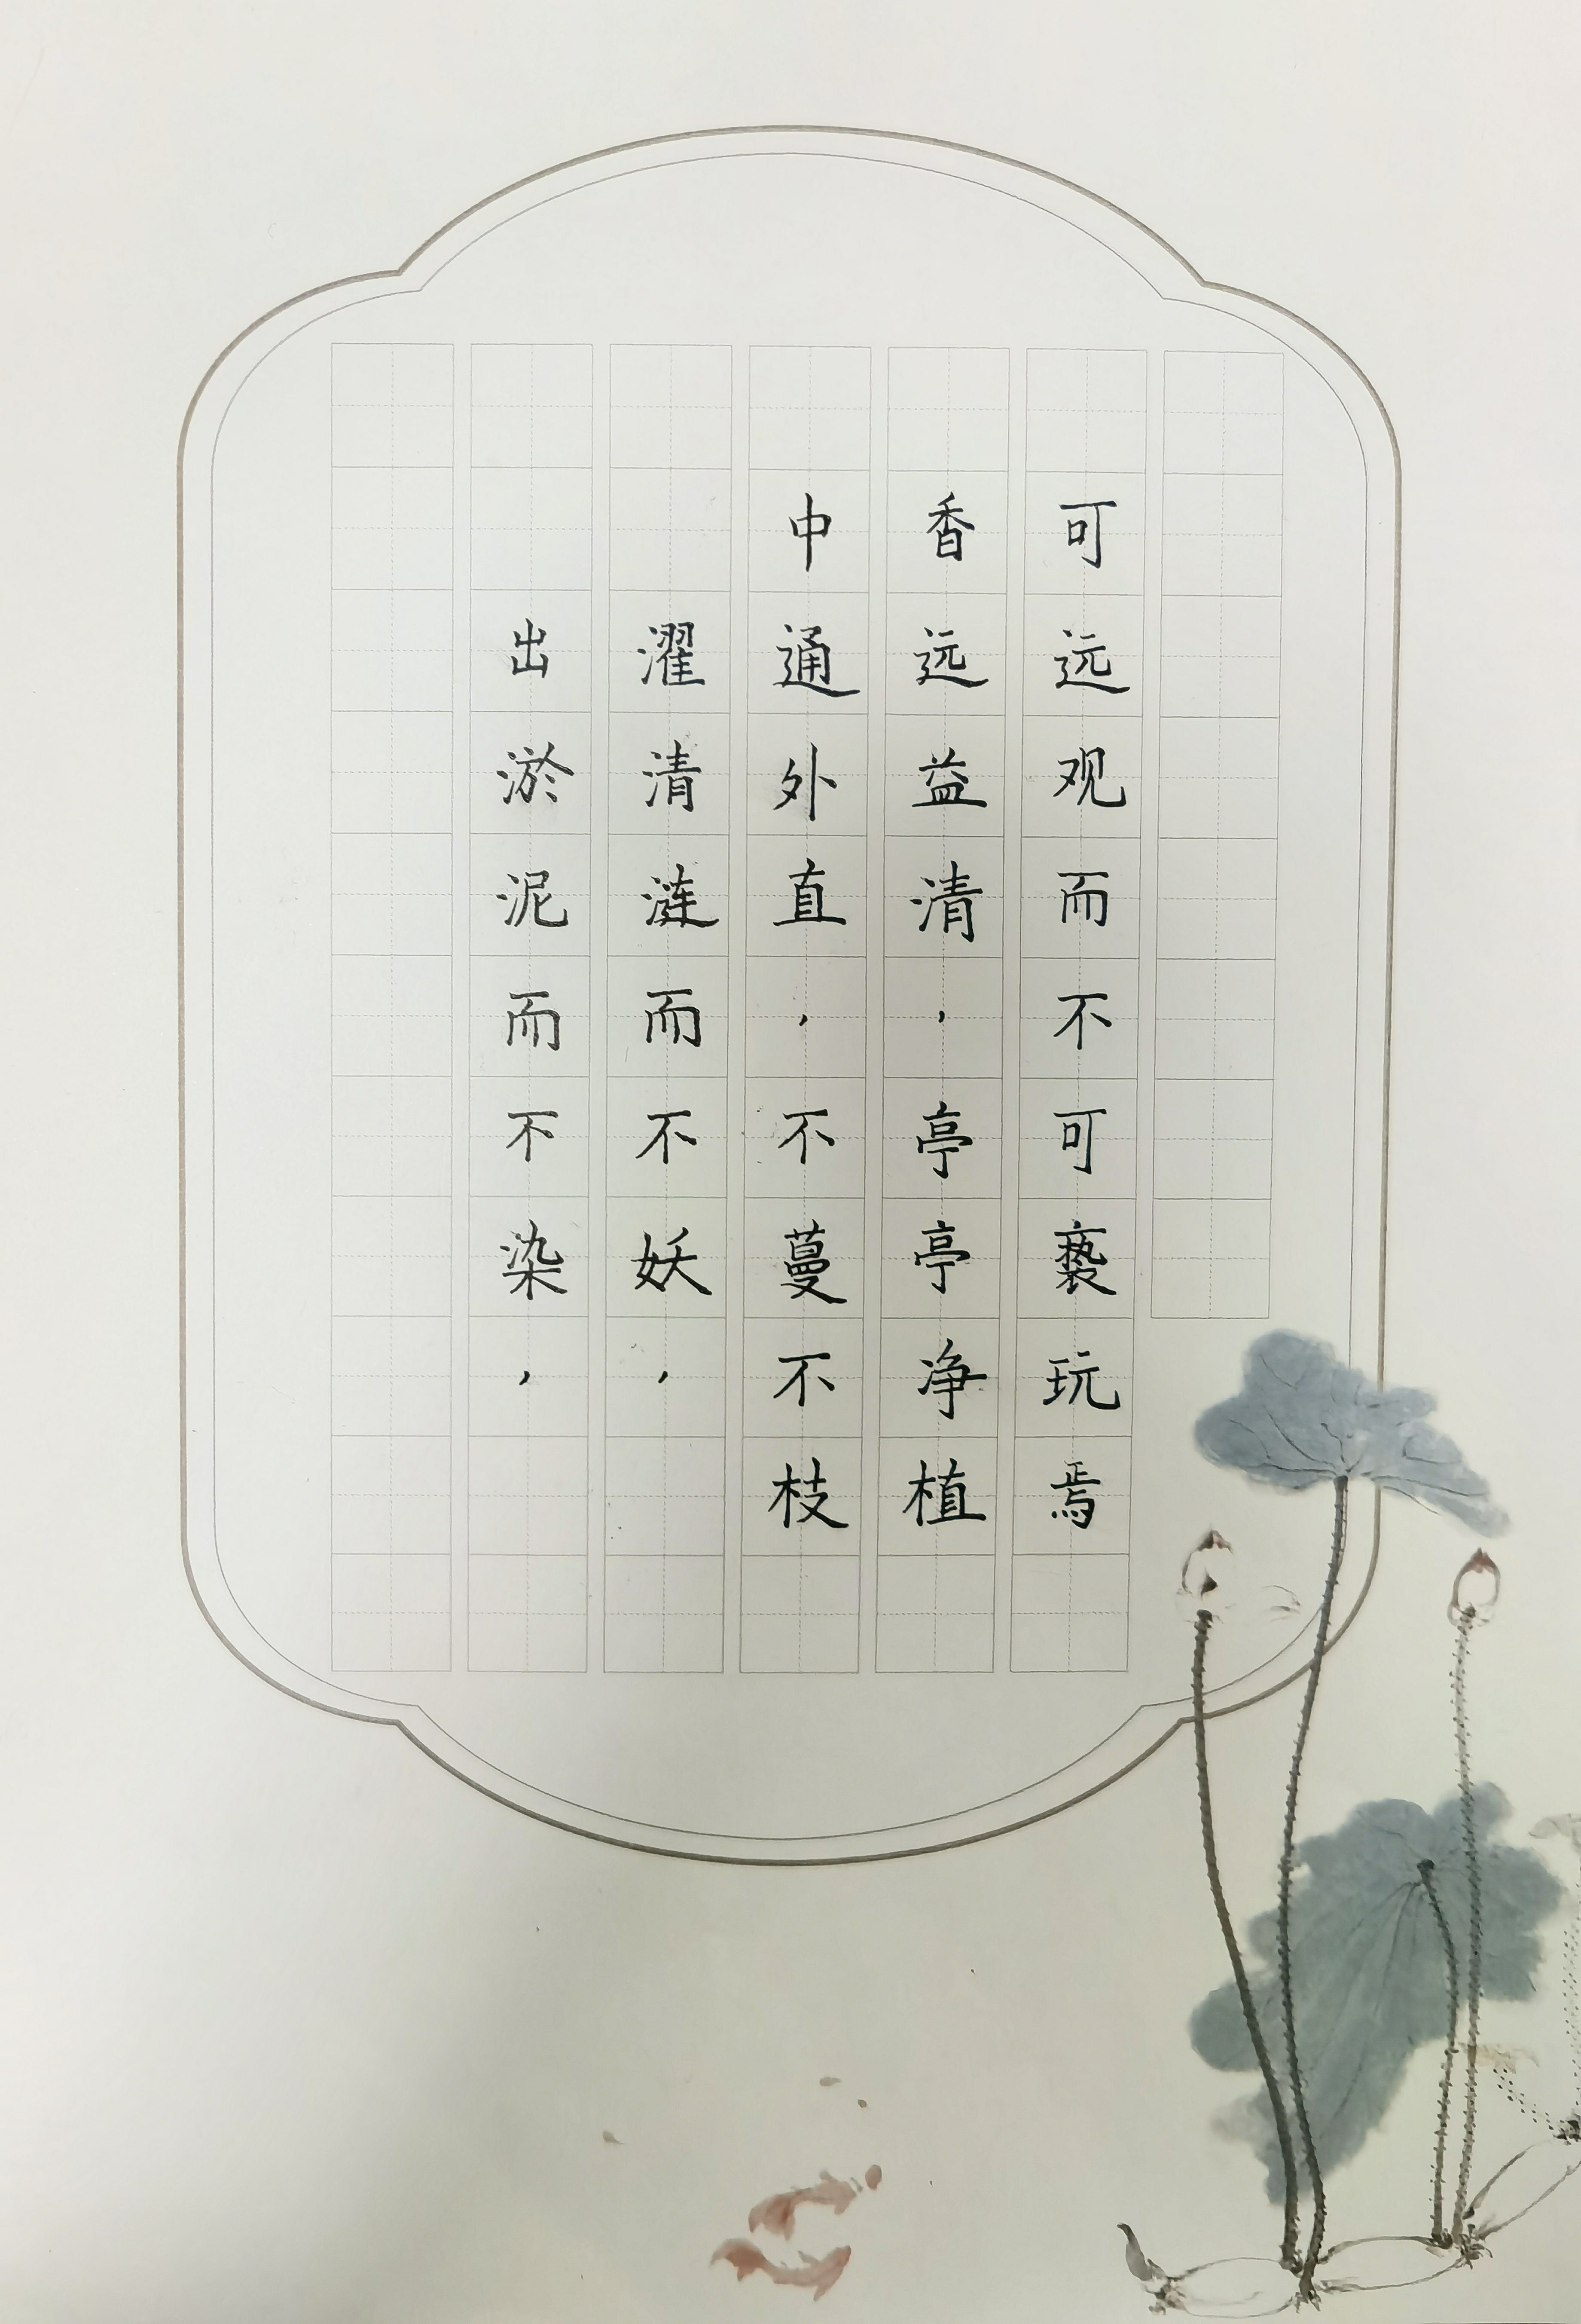 出淤泥而不染，
濯清涟而不妖，
中通外直，不蔓不枝
香远益清，亭亭净植
可远观而不可亵玩焉